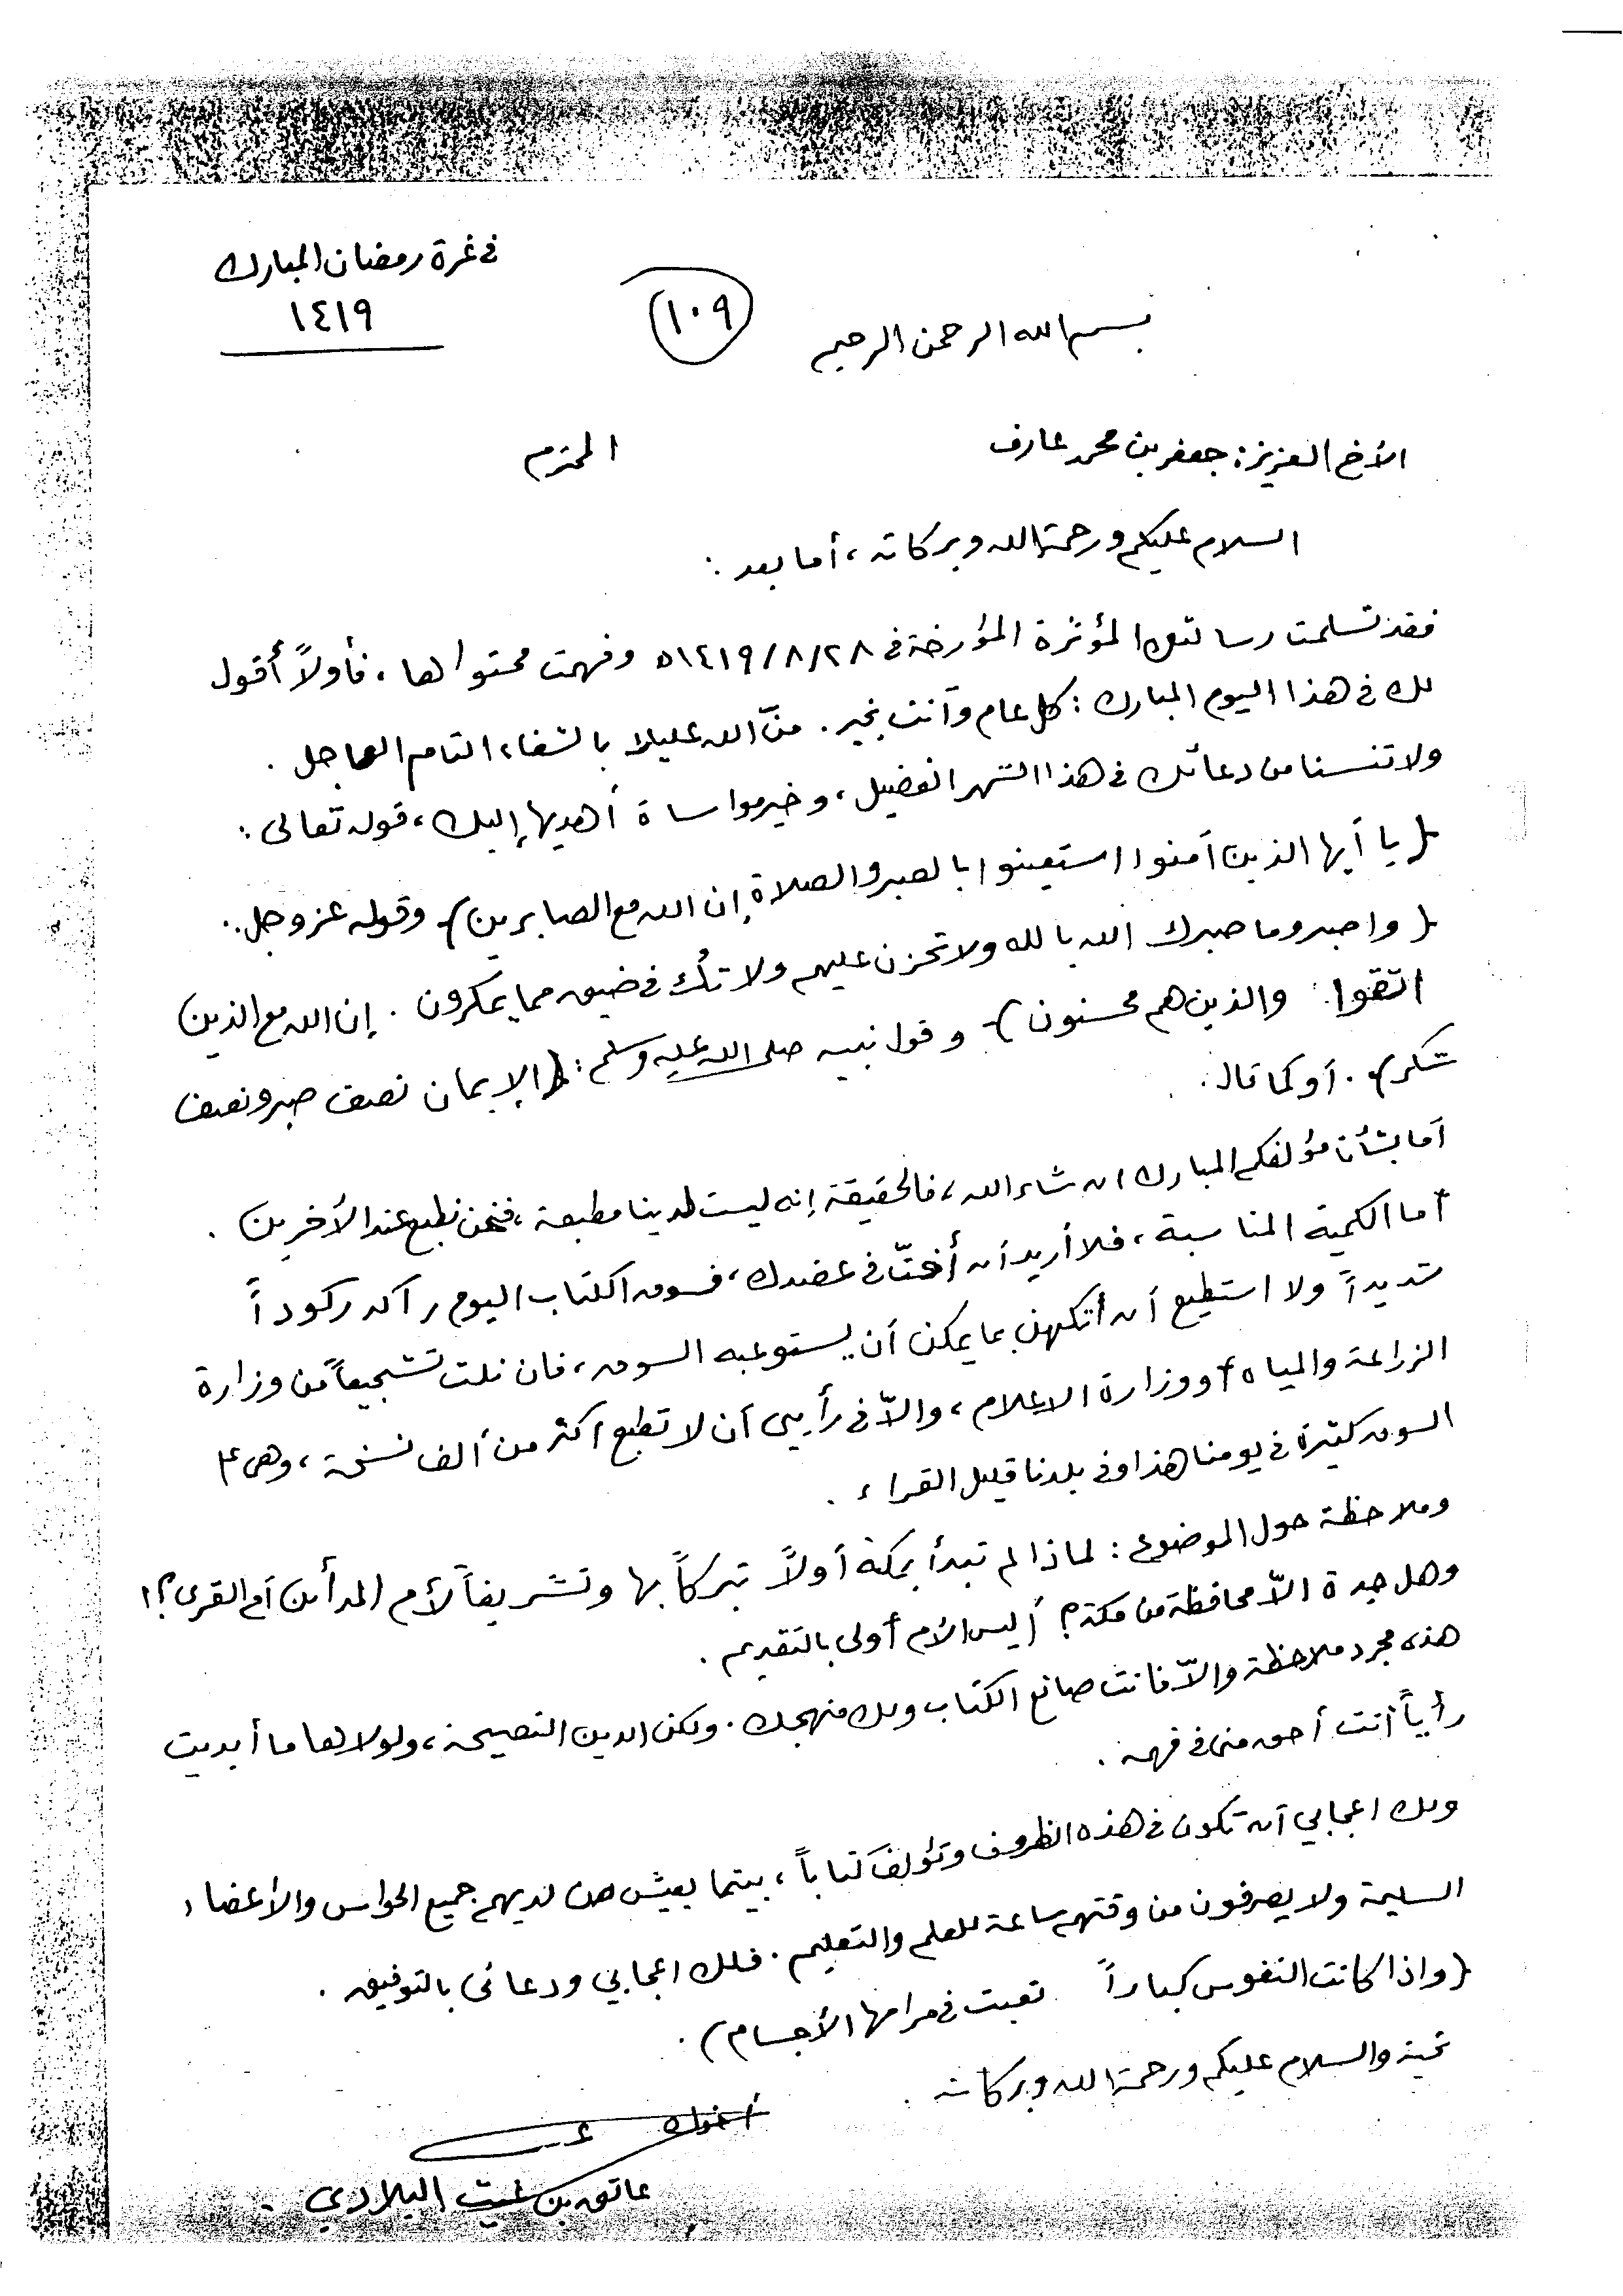 في غرة رمضان المبارك
١٤١٩
١٠٩
بسم الله الرحمن الرحيم
الأخ العزيز: جعفر بن محمد عارف المحترم
السلام عليكم ورحمة الله وبركاته، أما بعد:
فقد تسلمت رسالتك المؤثرة المؤرخة في ١٤١٩/٨/٢٨ه وفهمت محتواها، فأولاً أقول
لك في هذا اليوم المبارك: كل عام وأنت بخير. منّ الله عليك بالشفاء التام العاجل.
ولا تنسنا من دعائك في هذا الشهر الفضيل، وخير مواساة أهديها إليك، قوله تعالى:
{يا أيها الذين آمنوا استعينوا بالصبر والصلاة إن الله مع الصابرين} وقوله عز وجل:
{واصبر وما صبرك الله بالله ولا تحزن عليهم ولا تك في ضيق مما يمكرون. إن الله مع الذين
اتقوا والذين هم محسنون} وقول نبيه صلى الله عليه وسلم: {الإيمان نصف صبر ونصف
شكر}. أو كما قال.
أما بشأن مؤلفكم المبارك ان شاء الله، فالحقيقة إنه ليست لدينا مطبعة، فنحن نطبع عند الأخرين.
أما الكمية المناسبة، فلا أريد أن أفتّ في عضدك، فسوق الكتاب اليوم راكد ركوداً
شديداً ولا استطيع أن أتكهن بما يمكن أن يستوعبه السوق، فان نلت تشجيعاً من وزارة
الزراعة والمياه أو وزارة الاعلام، والاّ في رأيي أن لا تطبع أكثر من ألف نسخة، وهي
السوق كثيرة في يومنا هذا وفي بلدنا قليل القراء.
وملاحظة حول الموضوع: لماذا لم تبدأ بمكة أولاً تبركاً بها وتشريفاً لأم المدائن أم القرى؟!
وهل جدة الاّ محافظة من مكة؟ أليس الأم أولى بالتقديم.
هذه مجرد ملاحظة والاّ فانت صانع الكتاب ولك منهجك. ولكن الدين النصيحة، ولولاها ما أبديت
رأياً أنت أحق مني في فهمه.
ولك اعجابي أن تكون في هذه الظروف وتؤلف كتاباً، بينما يعيش من لديهم جميع الحواس والأعضاء
السليمة ولا يصرفون من وقتهم ساعة للعلم والتعليم. فلك اعجابي ودعائي بالتوفيق.
(واذا كانت النفوس كباراً تعبت في مرامها الأجسام).
تحية والسلام عليكم ورحمة الله وبركاته.
أخوك
عاتق بن غيث البلادي